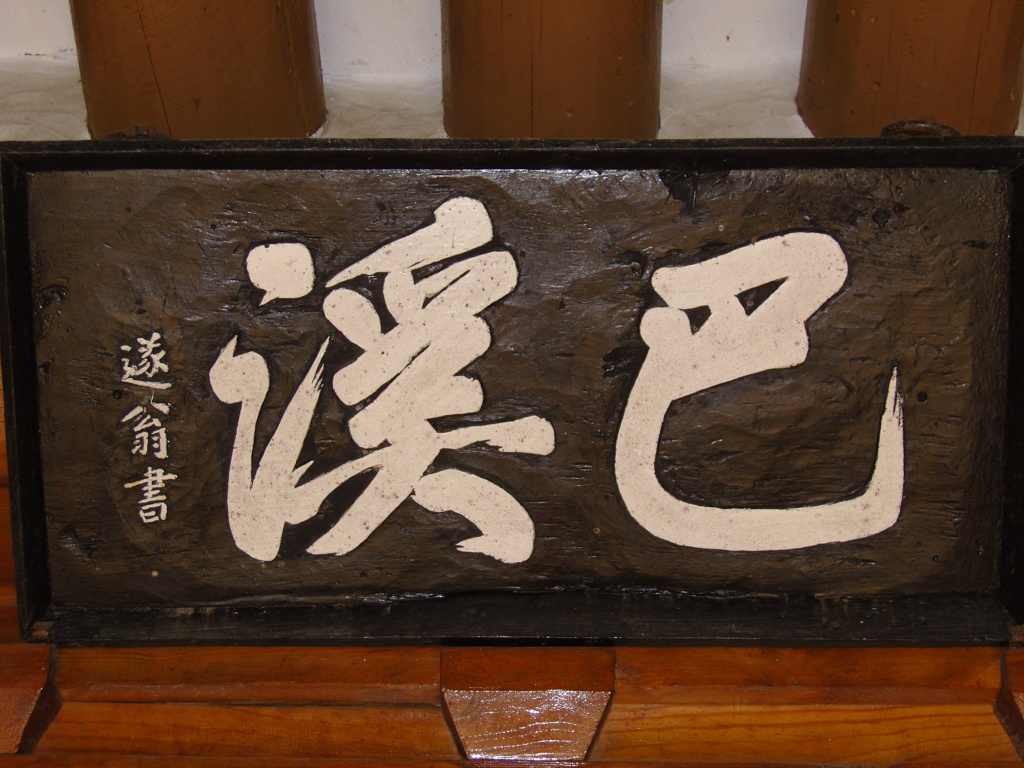 巴溪
遂翁書